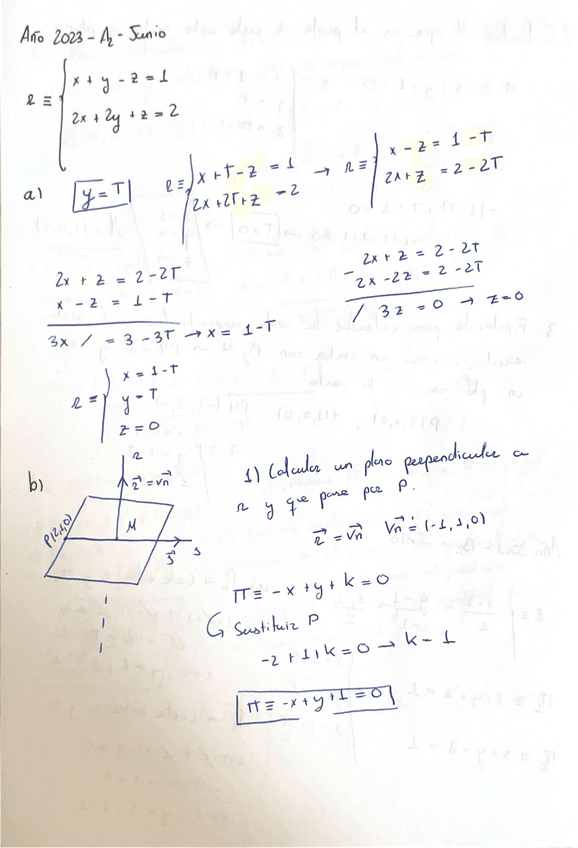 Año 2023 - A2 - Junio
r ≡ { x + y - z = 1
2x + 2y + z = 2
a) y = T r ≡ { x + T - z = 1 → r ≡ { x - z = 1 - T
2x + 2T + z = 2 2x + z = 2 - 2T
2x + z = 2 - 2T - 2x + z = 2 - 2T
x - z = 1 - T 2x - 2z = 2 - 2T
3x / = 3 - 3T → x = 1 - T / 3z = 0 → z = 0
r ≡ { x = 1 - T
y = T
z = 0
b) r
r⃗ = vn⃗
P(2,1,0) M
s⃗ s
1) Calcular un plano perpendicular a
r y que pase por P.
r⃗ = vn⃗ vn⃗ = (-1, 1, 0)
π ≡ -x + y + k = 0
↳ Sustituir P
-2 + 1 + k = 0 → k = 1
π ≡ -x + y + 1 = 0